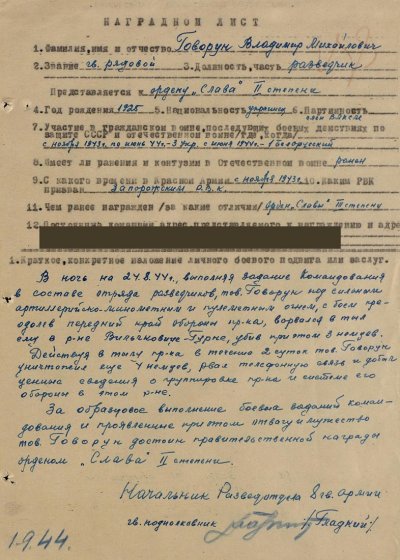 НАГРАДНОЙ ЛИСТ
1. Фамилия, имя и отчество Говорун Владимир Михайлович
2. Звание гв. рядовой 3. Должность, часть разведчик
Представляется к ордену „Слава" II степени
4. Год рождения 1925 5. Национальность украинец 6. Партийность
член ВЛКСМ
7. Участие в гражданской войне, последующих боевых действиях по
защите СССР и отечественной войне /где, когда/
с ноября 1943г. по июнь 44г.- 3 Укр. с июня 1944г.- 1 Белорусский
8. Имеет ли ранения и контузии в Отечественной войне ранен
9. С какого времени в Красной Армии с ноября 1943г. 10. Каким РВК
призван Запорожским О.В.К.
11. Чем ранее награжден /за какие отличия/ орден „Славы" III степени
12. Постоянный домашний адрес представляемого к награждению и адрес
1. Краткое, конкретное изложение личного боевого подвига или заслуг.
В ночь на 24.8.44г., выполняя задание командования
в составе отряда разведчиков, тов. Говорун под сильным
артиллерийско-минометным и пулеметным огнем, с боем пре-
одолев передний край обороны пр-ка, ворвался в тыл
ему в р-не Вильчковице-Гурне, убив при этом 3 немцев.
Действуя в тылу пр-ка в течение 2 суток тов. Говорун
уничтожил еще 4 немцев, рвал телефонную связь и добыл
ценные сведения о группировке пр-ка и системе его
обороны в этом р-не.
За образцовое выполнение боевых заданий коман-
дования и проявленные при этом отвагу и мужество
тов. Говорун достоин правительственной награды
орденом „Слава" II степени.
Начальник Разведотдела 8 гв. Армии
гв. подполковник /Гладкий/
1.9.44.